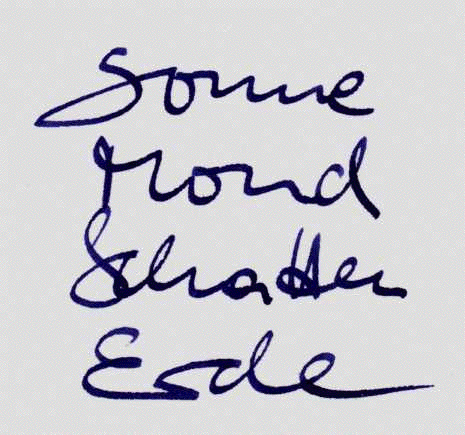 Sonne
Mond
Schatten
Erde